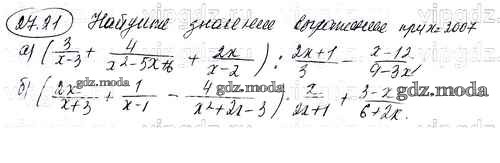 27.21 Найдите значение выражение при x=2007
а) (3/(x-3) + 4/(x²-5x+6) + 2x/(x-2)) : (2x+1)/3 - (x-12)/(9-3x)
б) (2x/(x+3) + 1/(x-1) - 4/(x²+2x-3)) · x/(2x+1) + (3-x)/(6+2x).
gdz.moda gdz.moda gdz.moda